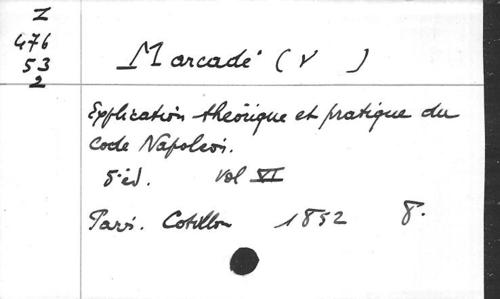 Z
476
53
2
Marcadé (V )
Explication théorique et pratique du
Code Napoleon.
5 éd. vol VI
Paris. Cotillon 1852 8°.